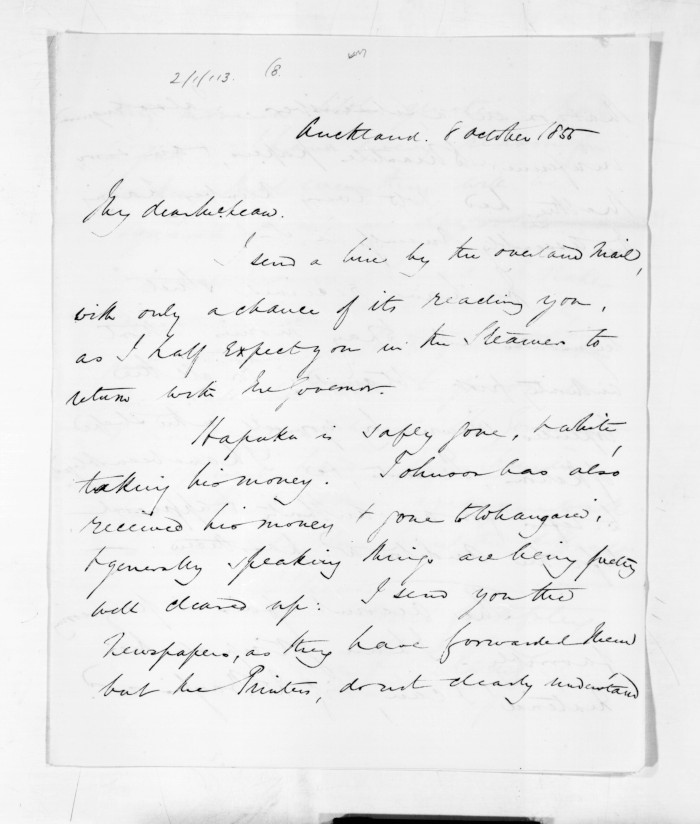 2/1/113. 18.
Auckland. 8 October 1855
My dear McLean.
I send a line by the overland Mail,
with only a chance of its reaching you,
as I half expect you in the Steamer to
return with the Governor.
Hapuku is safely gone, & White,
taking his money. Johnson has also
received his money & gone to Whangarei,
& generally speaking things are being pretty
well cleared up: I send you the
Newspapers, as they have forwarded them
but the Printers, do not clearly understand